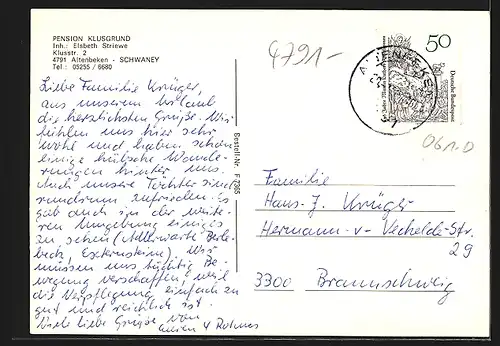 PENSION KLUSGRUND
Inh.: Elsbeth Striewe
Klusstr. 2
4791 Altenbeken - SCHWANEY
Tel.: 05255 / 6680
Liebe Familie Krüger,
aus unserem Urlaub
die herzlichsten Grüße. Wir
fühlen uns hier sehr
wohl und haben schon
einige hübsche Wande-
rungen hinter uns.
Auch unsere Töchter sind
rundrum zufrieden. Es
gab auch in der weite-
ren Umgebung einiges
zu sehen (Adlerwarte Berle-
beck, Externsteine). Wir
müssen uns tüchtig Be-
wegung verschaffen, weil
die Verpflegung einfach zu
gut und reichlich ist.
Viele liebe Grüße von
4
Bestell-Nr. F 7365
4791-
ALTENBEKEN
50
Deutsche Bundespost
061.D
Familie
Hans-J. Krüger
Hermann-v-Vechelde-Str.
29
3300 Braunschweig